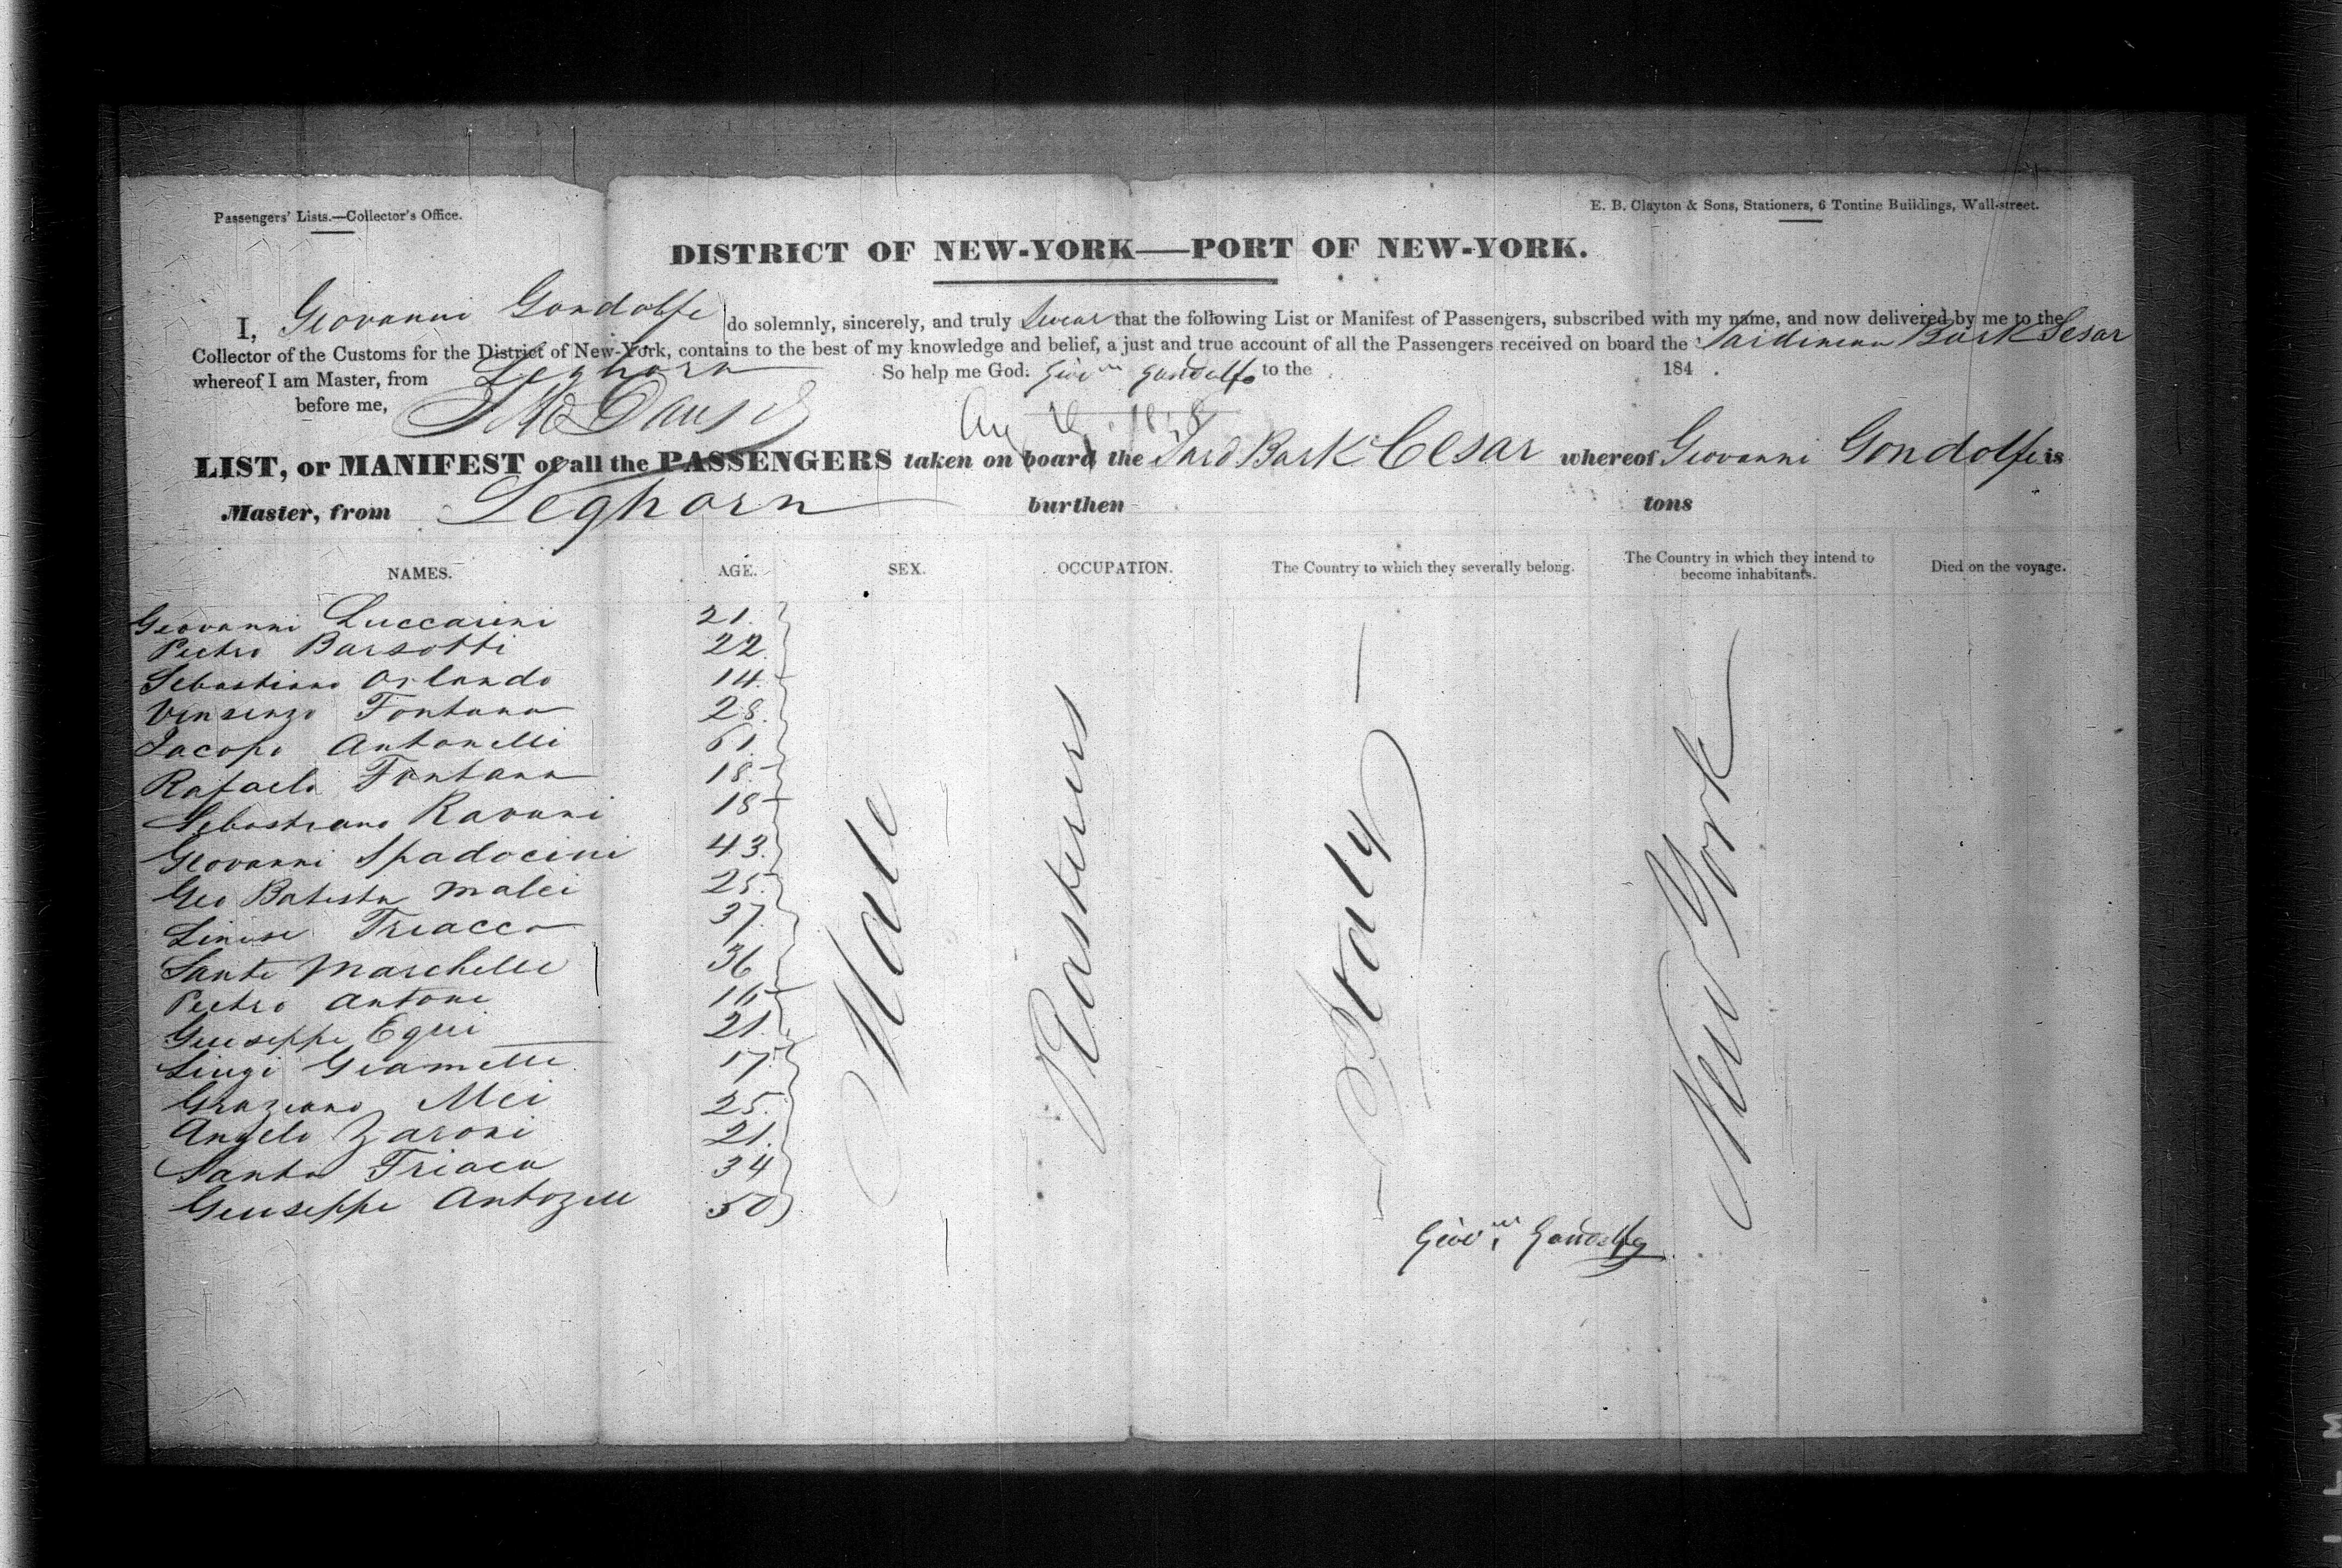 Passengers' Lists.—Collector's Office.
E. B. Clayton & Sons, Stationers, 6 Tontine Buildings, Wall-street.
DISTRICT OF NEW-YORK—PORT OF NEW-YORK.
I, Geovanni Gondolfe do solemnly, sincerely, and truly Swear that the following List or Manifest of Passengers, subscribed with my name, and now delivered by me to the
Collector of the Customs for the District of New-York, contains to the best of my knowledge and belief, a just and true account of all the Passengers received on board the Sardinean Bark Sesar
whereof I am Master, from Leghorn So help me God. Giov Gandolfo to the 184 .
before me,
LIST, or MANIFEST of all the PASSENGERS taken on board the Sard Bark Cesar whereof Geovanni Gondolfe is
Master, from Leghorn burthen tons
NAMES. AGE. SEX. OCCUPATION. The Country to which they severally belong. The Country in which they intend to become inhabitants. Died on the voyage.
Geovanni Luccarini 21.
Pietro Barsotti 22.
Sebastiano Orlando 14.
Vinsenzo Fontana 28.
Jacopo Antonelli 61.
Rafaelo Fontana 18
Sebastiano Ravani 18
Geovanni Spadocini 43.
Geo Batista Malei 25.
Triacco 37.
Sante Marchelle 36
Pietro Antoni 16
Giuseppe Equi 21.
Liugi Giamelli 17.
Graziano Mei 25.
Angelo Zaroni 21.
Santo Friaca 34
Geuseppe 50
Male
Italy
New York
Giov Gandolfo